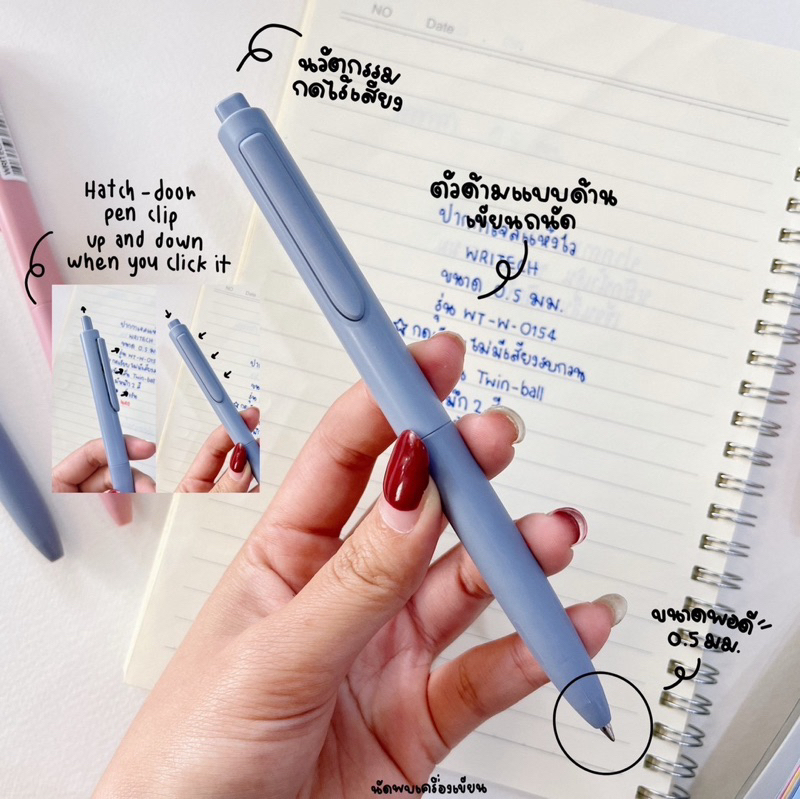 NO
Date
นวัตกรรม
กดไร้เสียง
Hatch-door
pen clip
up and down
when you click it
ตัวด้ามแบบด้าน
เขียนถนัด
WRITECH
ขนาด 0.5 มม.
รุ่น WT-W-0154
ไม่มีเสียงรบกวน
Twin-ball
ขนาดพอดี
0.5 มม.
นัดพบเครื่องเขียน